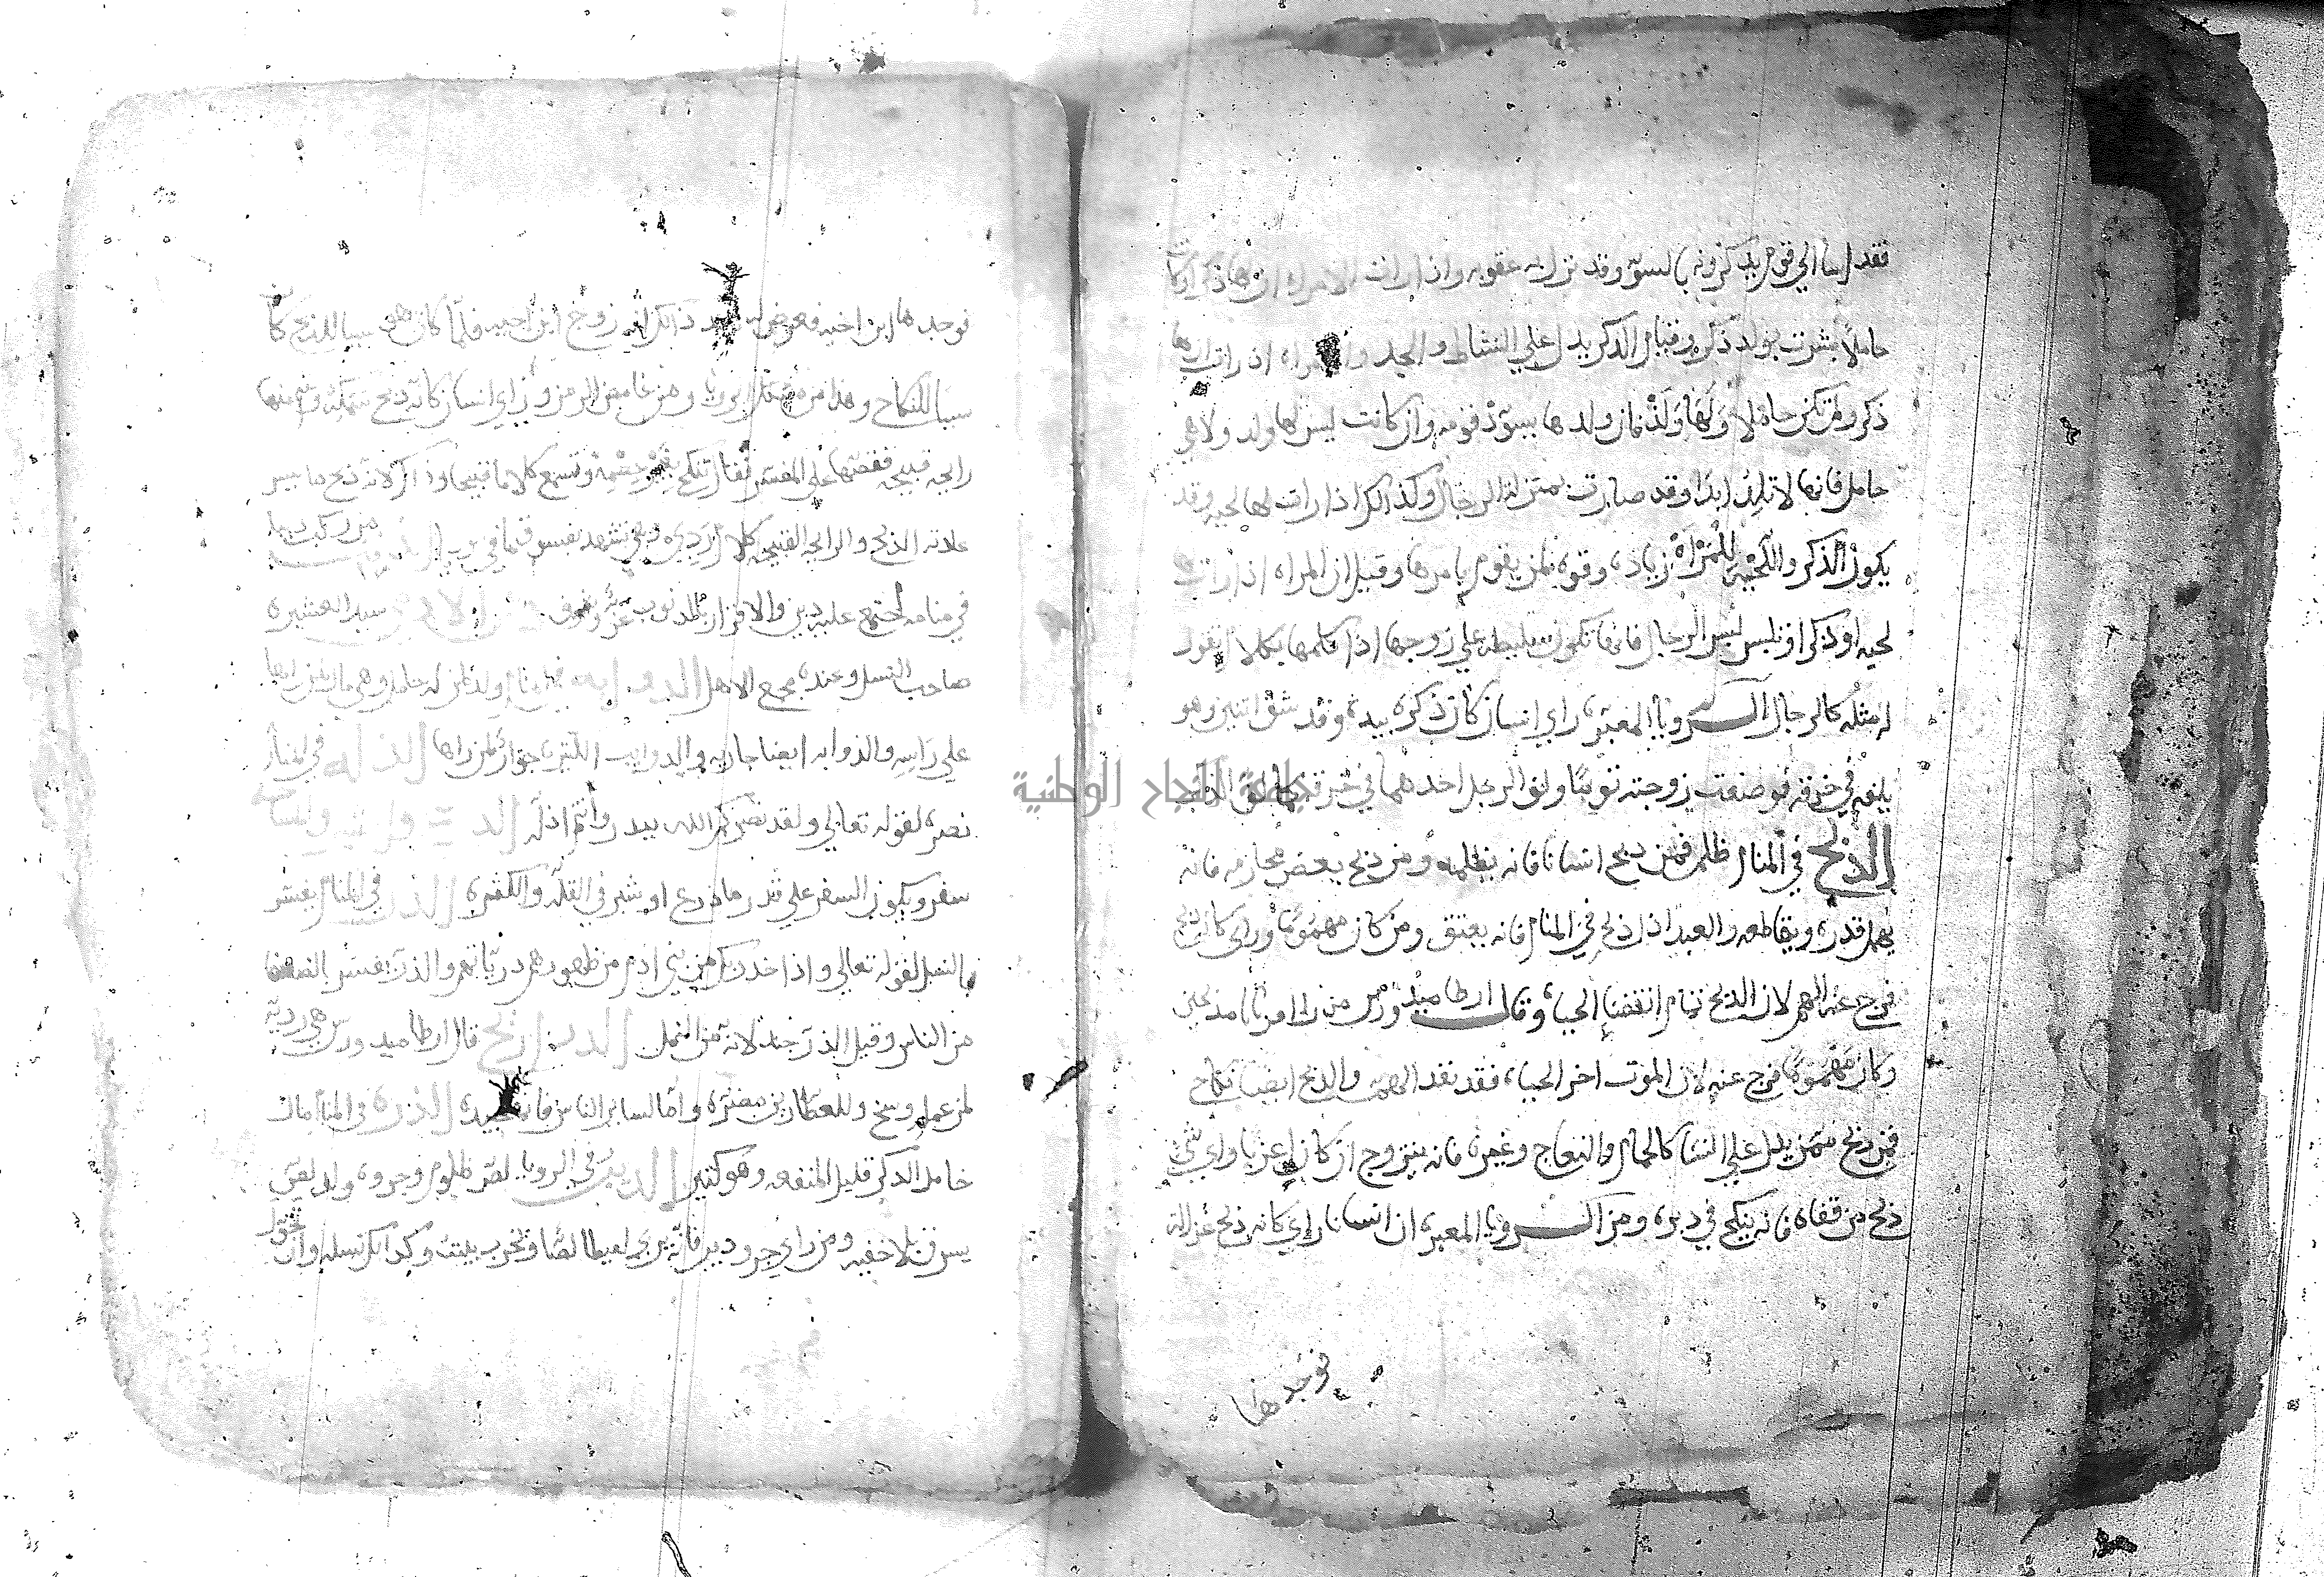 فقد اسا الي قوم يذكرونه بالسوّ وقد نزل به عقوبه واذا رات الامراه ان لها ذكرا وكانت
حاملا بشرت بولد ذكر وقيام الذكر يدل علي النشاط والجد والمراه اذا رات ان لها
ذكر ولم تكن حاملا ولها ولد فان ولدها يسود قومه وان كانت ليس لها ولد ولا هي
حامل فانها لا تلد ابدا وقد صارت بمنزلة الرجال وكذالك اذا رات لها لحيه وقد
يكون الذكر واللحيه للمراة زياده وقوه لمن يقوم بامرها وقيل ان المراه اذا رات لها
لحيه او ذكرا او تلبس لبس الرجال فانها تكون سليطه علي زوجها اذا كلمها بكلام تقول
له مثله كالرجال الرويا المعبره راي انسان كان ذكره بيده وقد شق اثنين وهو
يلفه في خرقه فوضعت زوجته توما ولف الرجل احدهما في خرقه
الذبح في المنام ظلم فمن ذبح انسانا فانه يظلمه ومن ذبح بعض محارمه فانه
يهمل قدره ويقاطعه والعبد اذا ذبح في المنام فانه يعتق ومن كان مهموما وراي كانه ذبح
فرج عنه الهم لان الذبح تمام انقضا الحياه وقال ارطاميدورس من راي امرانا مذبحين
وكان مهموما فرج عنه لان الموت اخر الحياه فقد نفد الهم والذبح ايضا نكاح
فمن ذبح شي ممن يدل علي النسا كالحمام والنعاج وغيره فانه يتزوج ان كان عزبا واي شي
ذبح من قفاه فانه ينكح في دبره ومن الرويا المعبره ان انسانا راي كانه ذبح غزاله
فوجدها
فوجدها ابن اخيه فعوض له ذالك انه زوج ابن اخيه فلما كان هو سببا للذبح كان
سببا للنكاح وهذا من الرويا ومن غامض الرمز وراي انسان كانه ذبح سمكه وشم منها
رايحه قبيحه فقصها علي المعبر فقال تنكح بغير حشمة وتسمع كلاما قبيحا وذاك لانه ذبح ما ليس
عادته الذبح والرايحه القبيحه كلام ردي
في منامه اجتمع عليه دين والاقرار بالذنوب عز وشرف سيد العشيره
صاحب النسل وعنده مجمع الاهل الدوابه في المنام ولد لمن له حامل وهي مال لمن راها
علي راسه والذوابه ايضا جاريه والدوايب الكثيره جوار لمن راها الذله في المنام
نصره لقوله تعالي ولقد نصركم الله ببدر وانتم اذله
سفر ويكون السفر علي قدر ما ذرع او شبر في القلة والكثره الذر في المنام يفسر
بالنسل لقوله تعالي واذ اخذ ربك من بني ادم من ظهورهم ذرياتهم والذر يفسر بالضعفا
من الناس وقيل الذر جند لانه من النمل الذراريح قال ارطاميدورس هي رديه
لمن عمله وسخ وللعطارين مضره واما لساير الناس فانه جيده الذره في المنام مال
خامل الذكر قليل المنفعه وهو كثير الذيب في الرويا لص ظلوم وجروه ولد لص
يسرق بلا خفيه ومن راي جرو ديب فانه يربي لقيطا لصا وتخرب بيته وكدالك نسله وان تحول